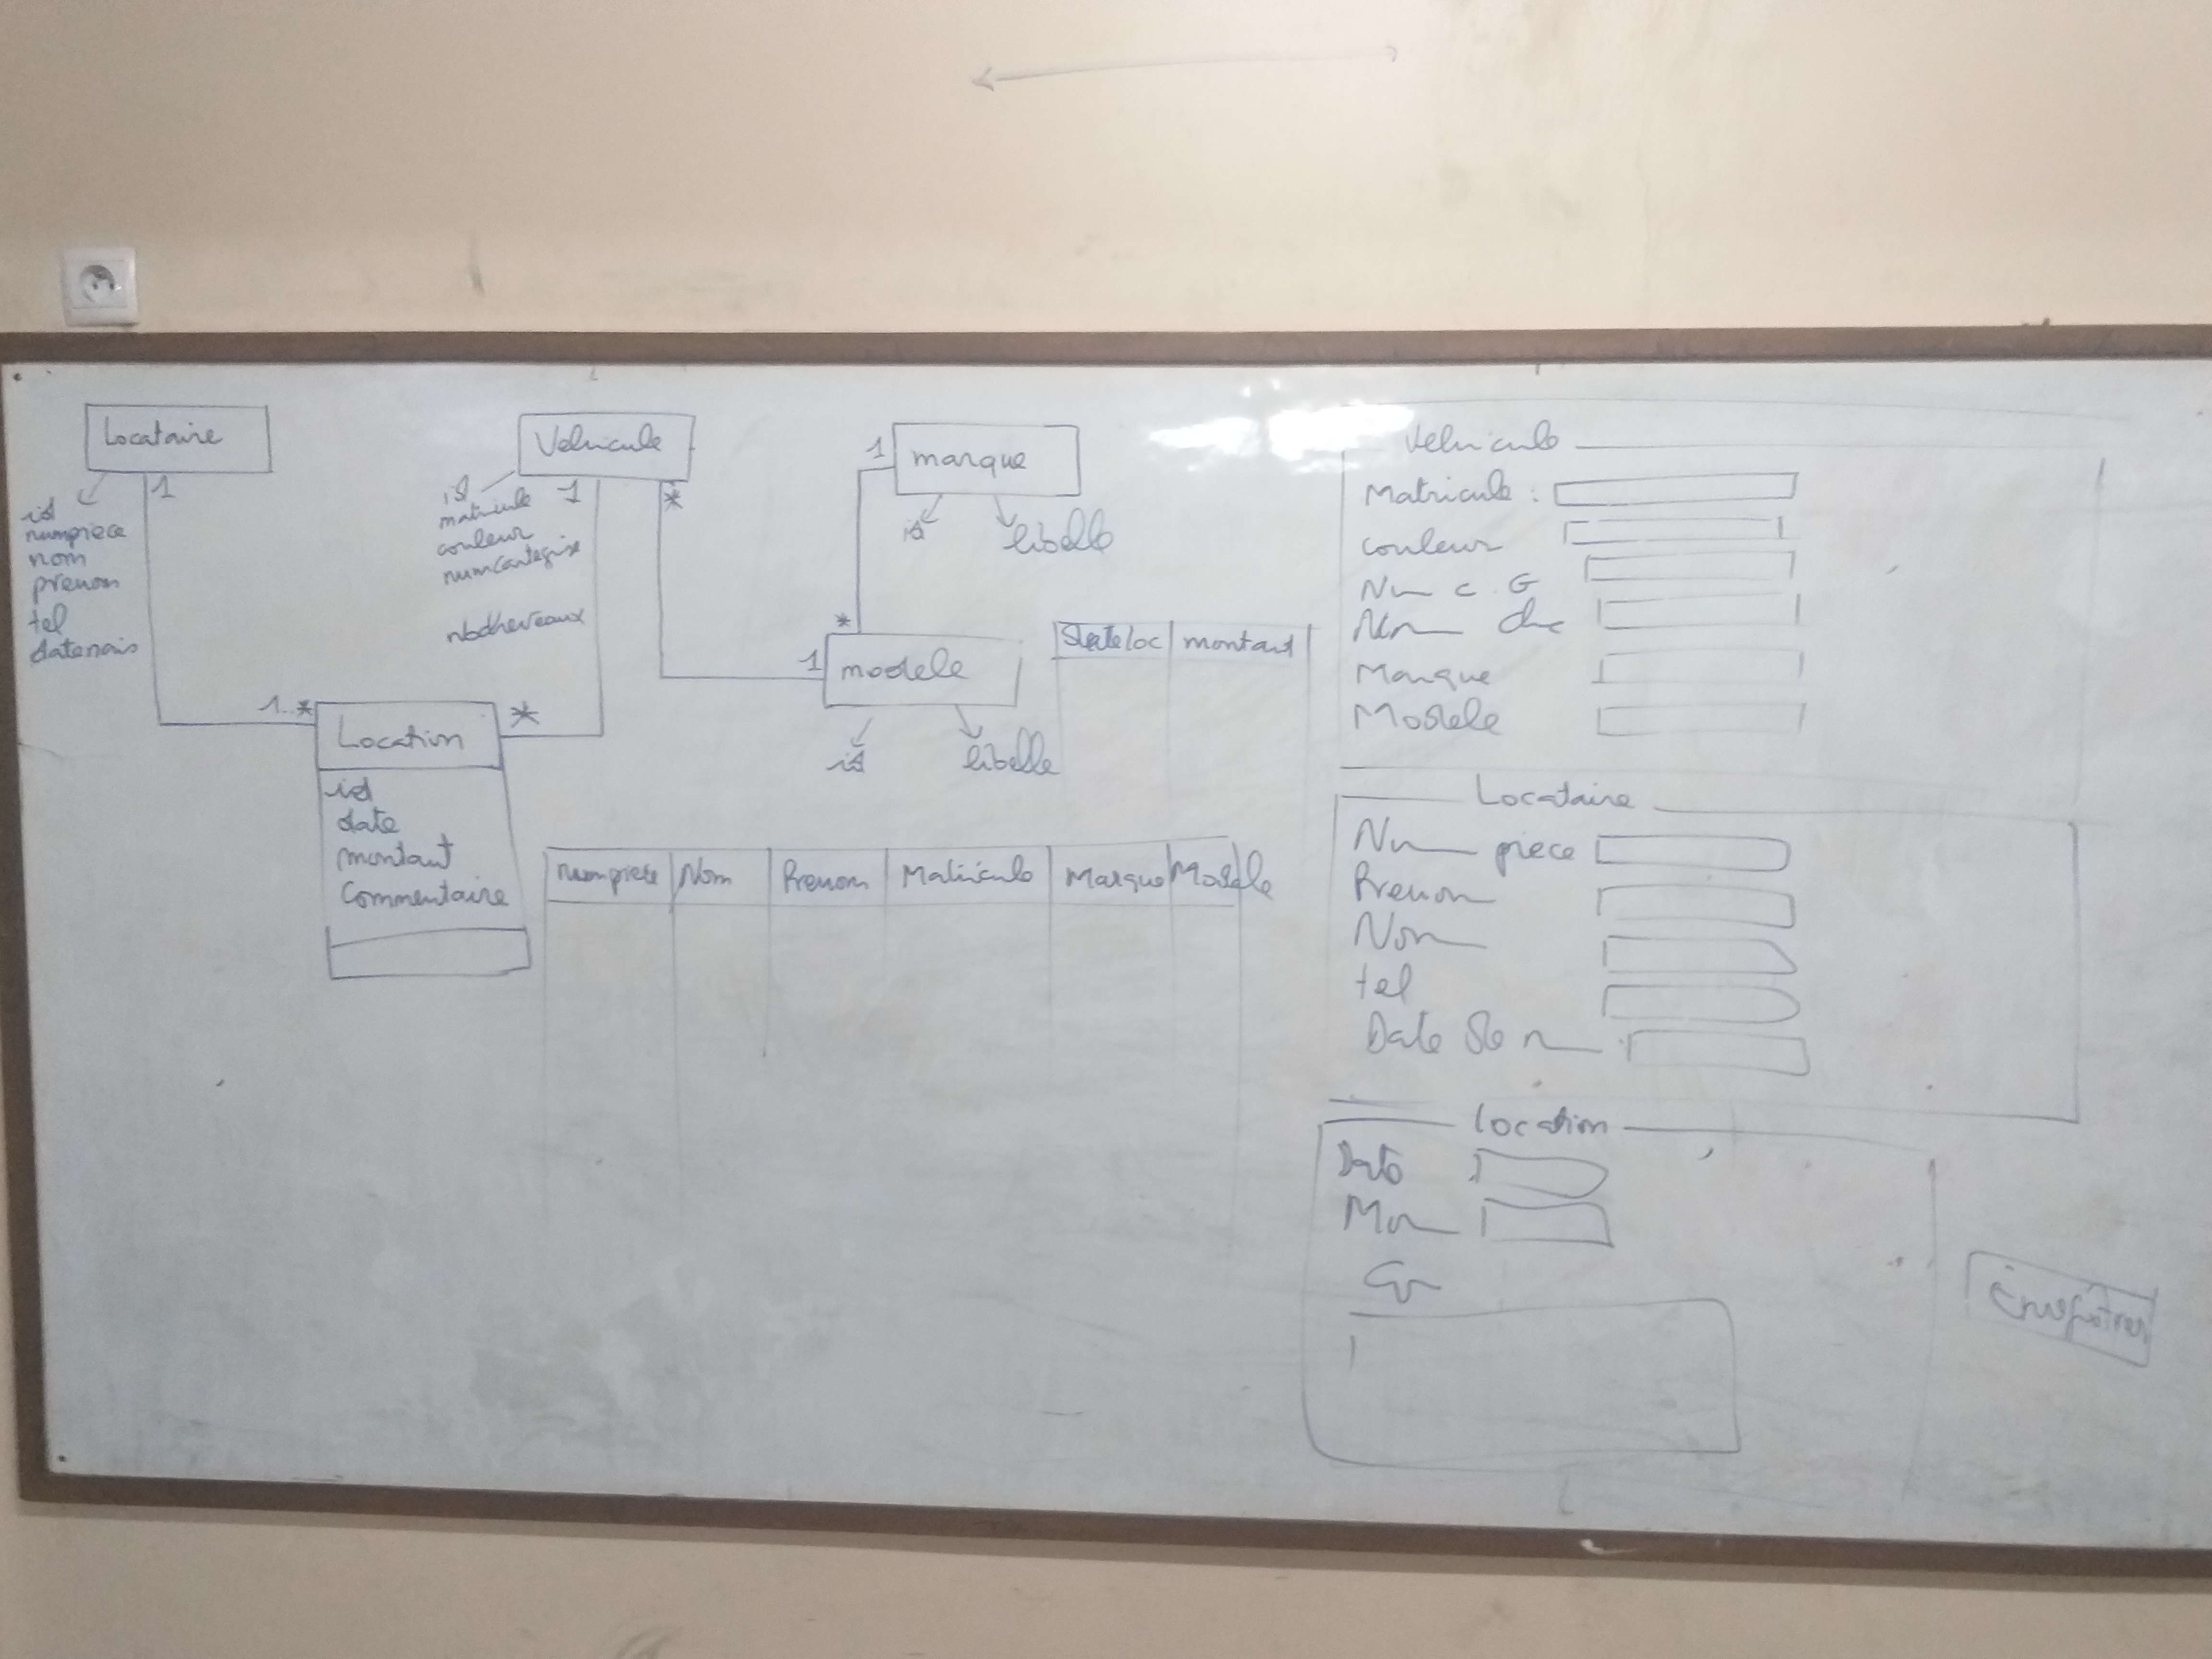 Locataire
1
id
numpiece
nom
prenom
tel
datenais
Vehicule
1
*
id
matricule
couleur
numcartegrise
nbchevaux
1
marque
id
libelle
*
1
modele
id
libelle
1..*
*
Location
id
date
montant
Commentaire
dateloc montant
numpiece Nom Prenom Matricule Marque Modele
Vehicule
Matricule :
couleur
Nu c.G
Marque
Modele
Locataire
Nu piece
Prenom
Nom
tel
Date de n
Location
Date
Mon
Enregistrer